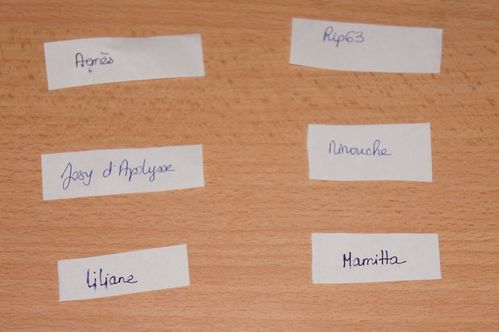 Agnès
Rip63
Josy d'Apolysse
Ninouche
Liliane
Mamitta